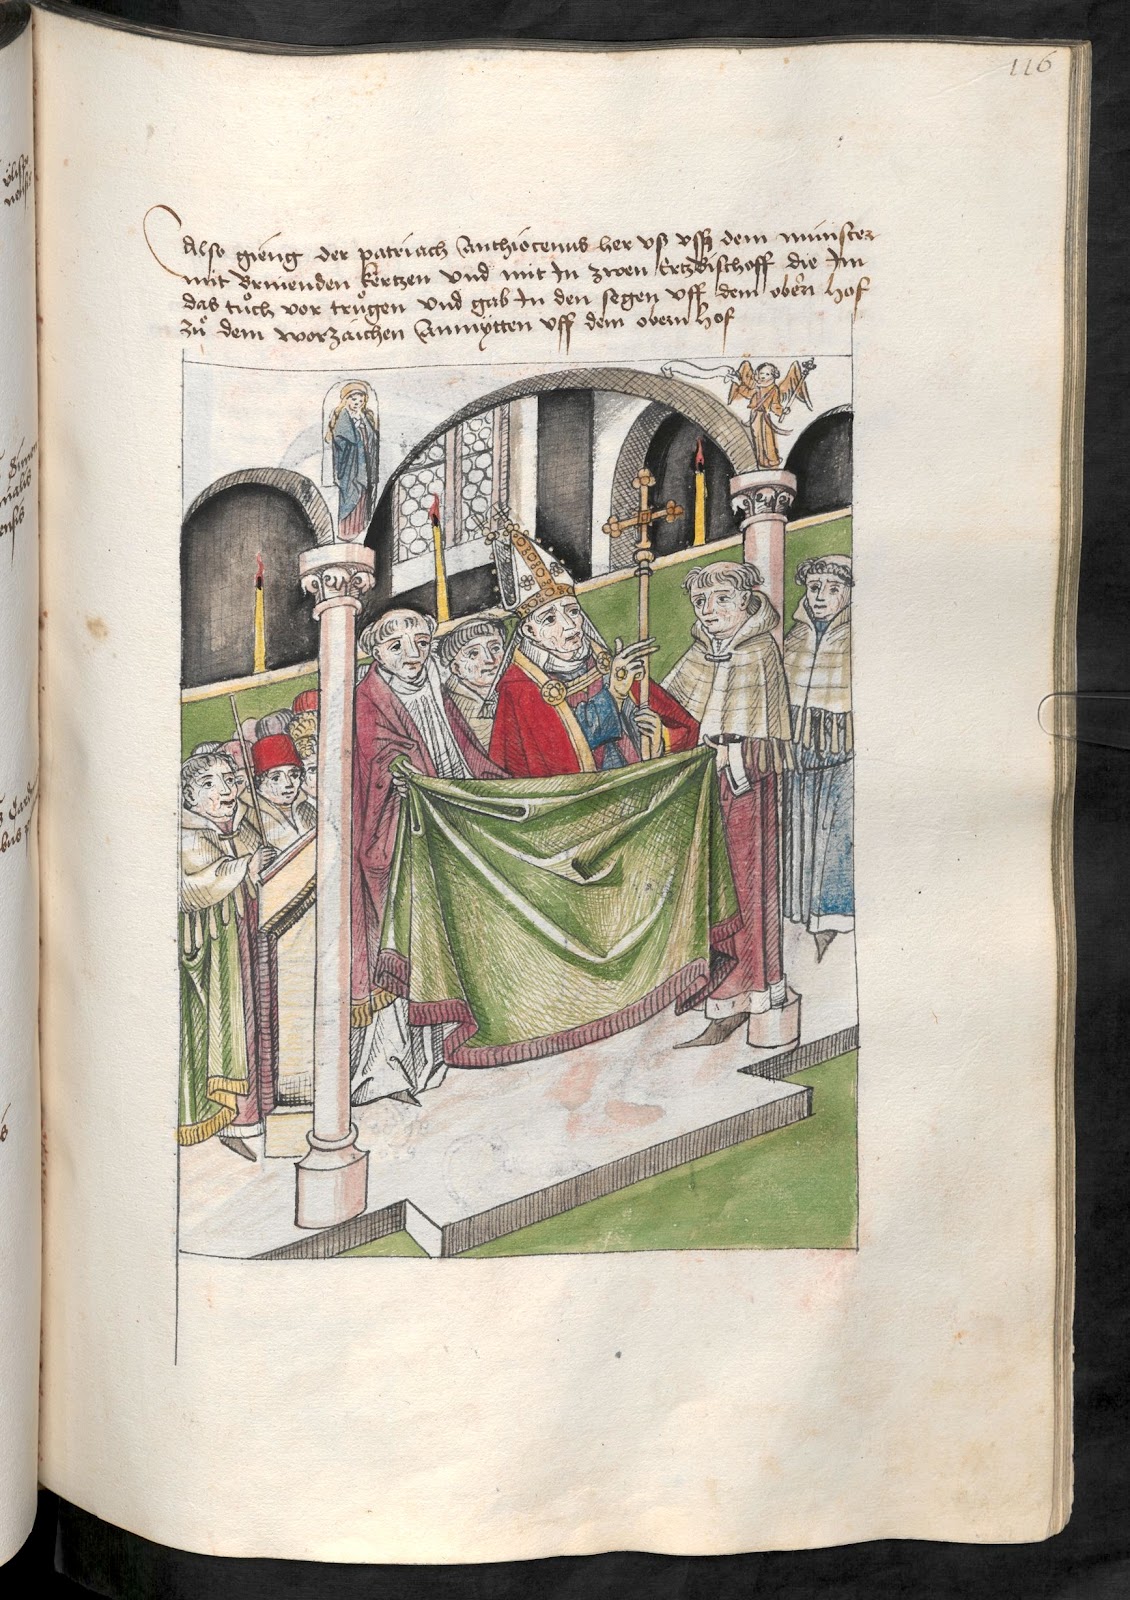 116
Also gieng der patriach Anthiocenus her vß vssz dem münster
mit Brinenden kertzen vnd mit In zwen Ertzbischoff die Im
das tuͦch vor truͦgen vnd gab In den segen vff dem obern hof
zuͦ dem worzaichen Annÿtten vff dem obern hof